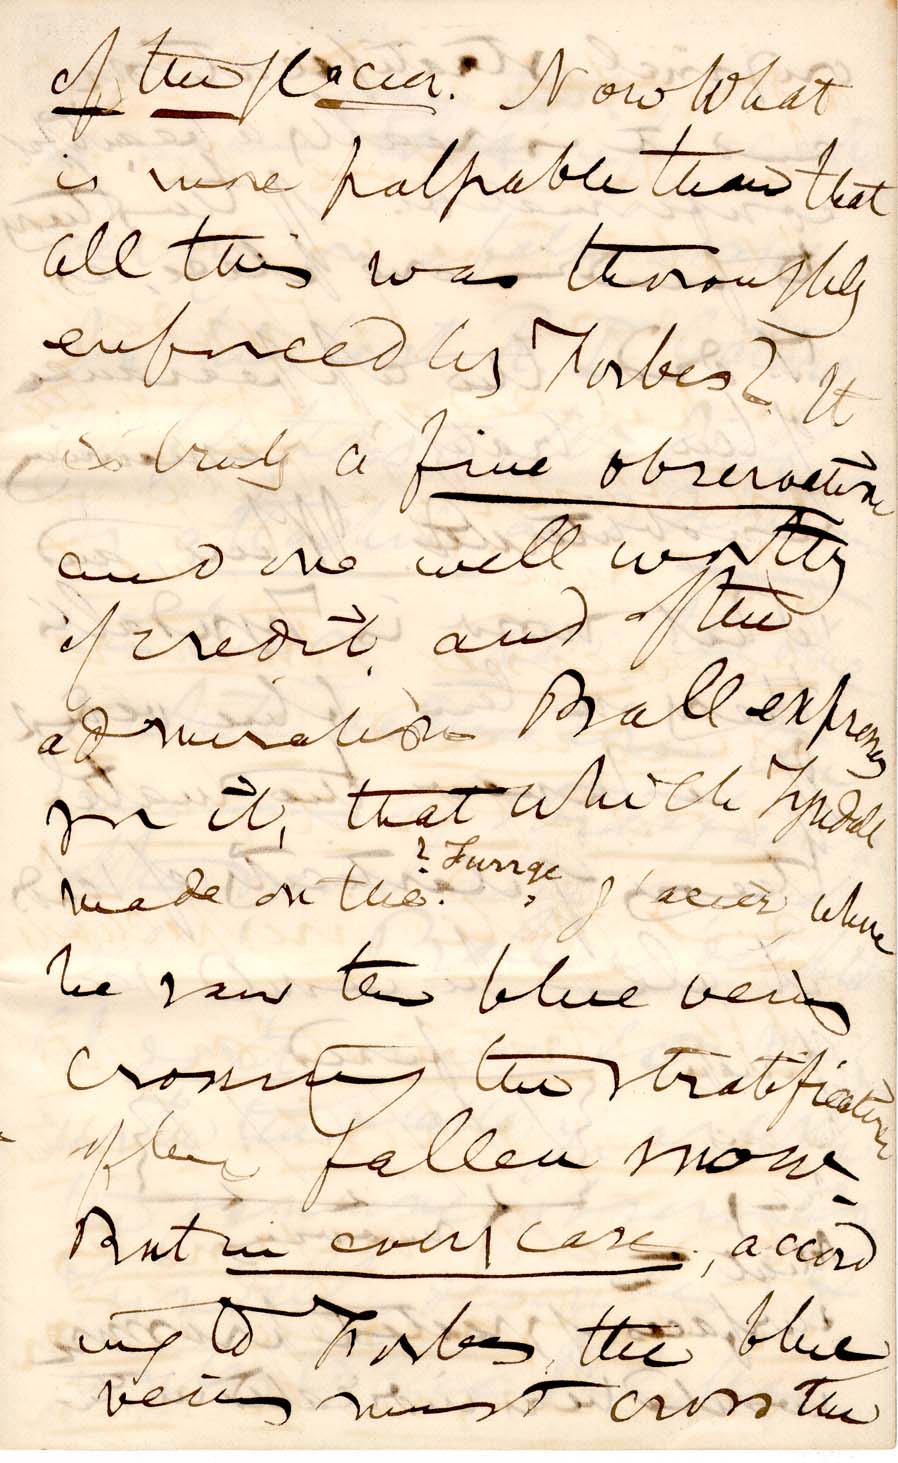 of the glacier. Now What
is more palpable than that
all this was thoroughly
enforced by Forbes? It
is truly a fine observation
and one well worthy
of credit, and of the
admiration Ball expresses
for it, that which Tyndall
made on the ? Furrge, glacier where
he saw the blue veins
crossing the stratification
of the fallen snow.
But in every case, accord
ing to Forbes, the blue
veins must cross the